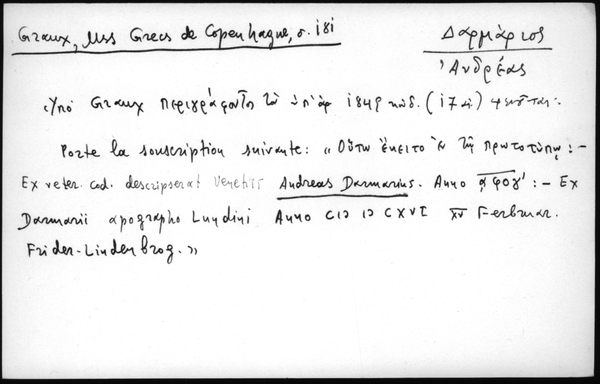 Graux, Mss Grecs de Copenhague, σ. 181
Δαρμάριος
Ἀνδρέας
Ὑπὸ Graux περιγράφοντος τὸν ὑπ' ἀρ 1849 κώδ. (17 αἰ.)
Porte la souscription suivante: « Οὕτω ἔκειτο ἐν τῷ πρωτοτύπῳ :-
Ex veter. cod. descripserat Venetiis Andreas Darmarius. Anno αφογ' :- Ex
Darmarii apographo Lundini Anno CIƆ IƆ CXVI XV Februar.
Frider-Lindenbrog. »